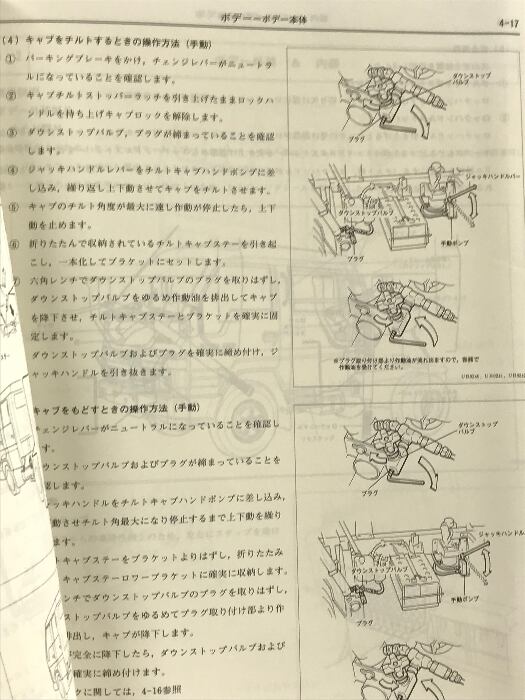 ボデー－ボデー本体
4-17
(4) キャブをチルトするときの操作方法（手動）
① パーキングブレーキをかけ，チェンジレバーがニュートラ
ルになっていることを確認します。
② キャブチルトストッパーラッチを引き上げたままロックハ
ンドルを持ち上げキャブロックを解除します。
③ ダウンストップバルブ，プラグが締まっていることを確認
します。
④ ジャッキハンドルレバーをチルトキャブハンドポンプに差
し込み，繰り返し上下動させてキャブをチルトさせます。
⑤ キャブのチルト角度が最大に達し作動が停止したら，上下
動を止めます。
⑥ 折りたたんで収納されているチルトキャブステーを引き起
こし，一本化してブラケットにセットします。
六角レンチでダウンストップバルブのプラグを取りはずし，
ダウンストップバルブをゆるめ作動油を排出してキャブ
を降下させ，チルトキャブステーとブラケットを確実に固
定します。
ダウンストップバルブおよびプラグを確実に締め付け，ジ
ャッキハンドルを引き抜きます。
キャブをもどすときの操作方法（手動）
チェンジレバーがニュートラルになっていることを確認し
す。
ウンストップバルブおよびプラグが締まっていることを
認します。
ャッキハンドルをチルトキャブハンドポンプに差し込み，
動させチルト角最大になり停止するまで上下動を繰り
ます。
トキャブステーをブラケットよりはずし，折りたたみ
キャブステーロワーブラケットに確実に収納します。
ンチでダウンストップバルブのプラグを取りはずし，
ストップバルブをゆるめてプラグ取り付け部より作
排出し，キャブが降下します。
完全に降下したら，ダウンストップバルブおよび
確実に締め付けます。
クに関しては，4-16参照
ダウンストップ
バルブ
プラグ
ジャッキハンドルバー
ダウンストップバルブ
手動ポンプ
プラグ
※プラグ取り付け部より作動油が流れ出ますので，容器で
作動油を受けてください。
ダウンストップ
バルブ
プラグ
ジャッキハンドル
ダウンストップバルブ
手動ポンプ
プラグ